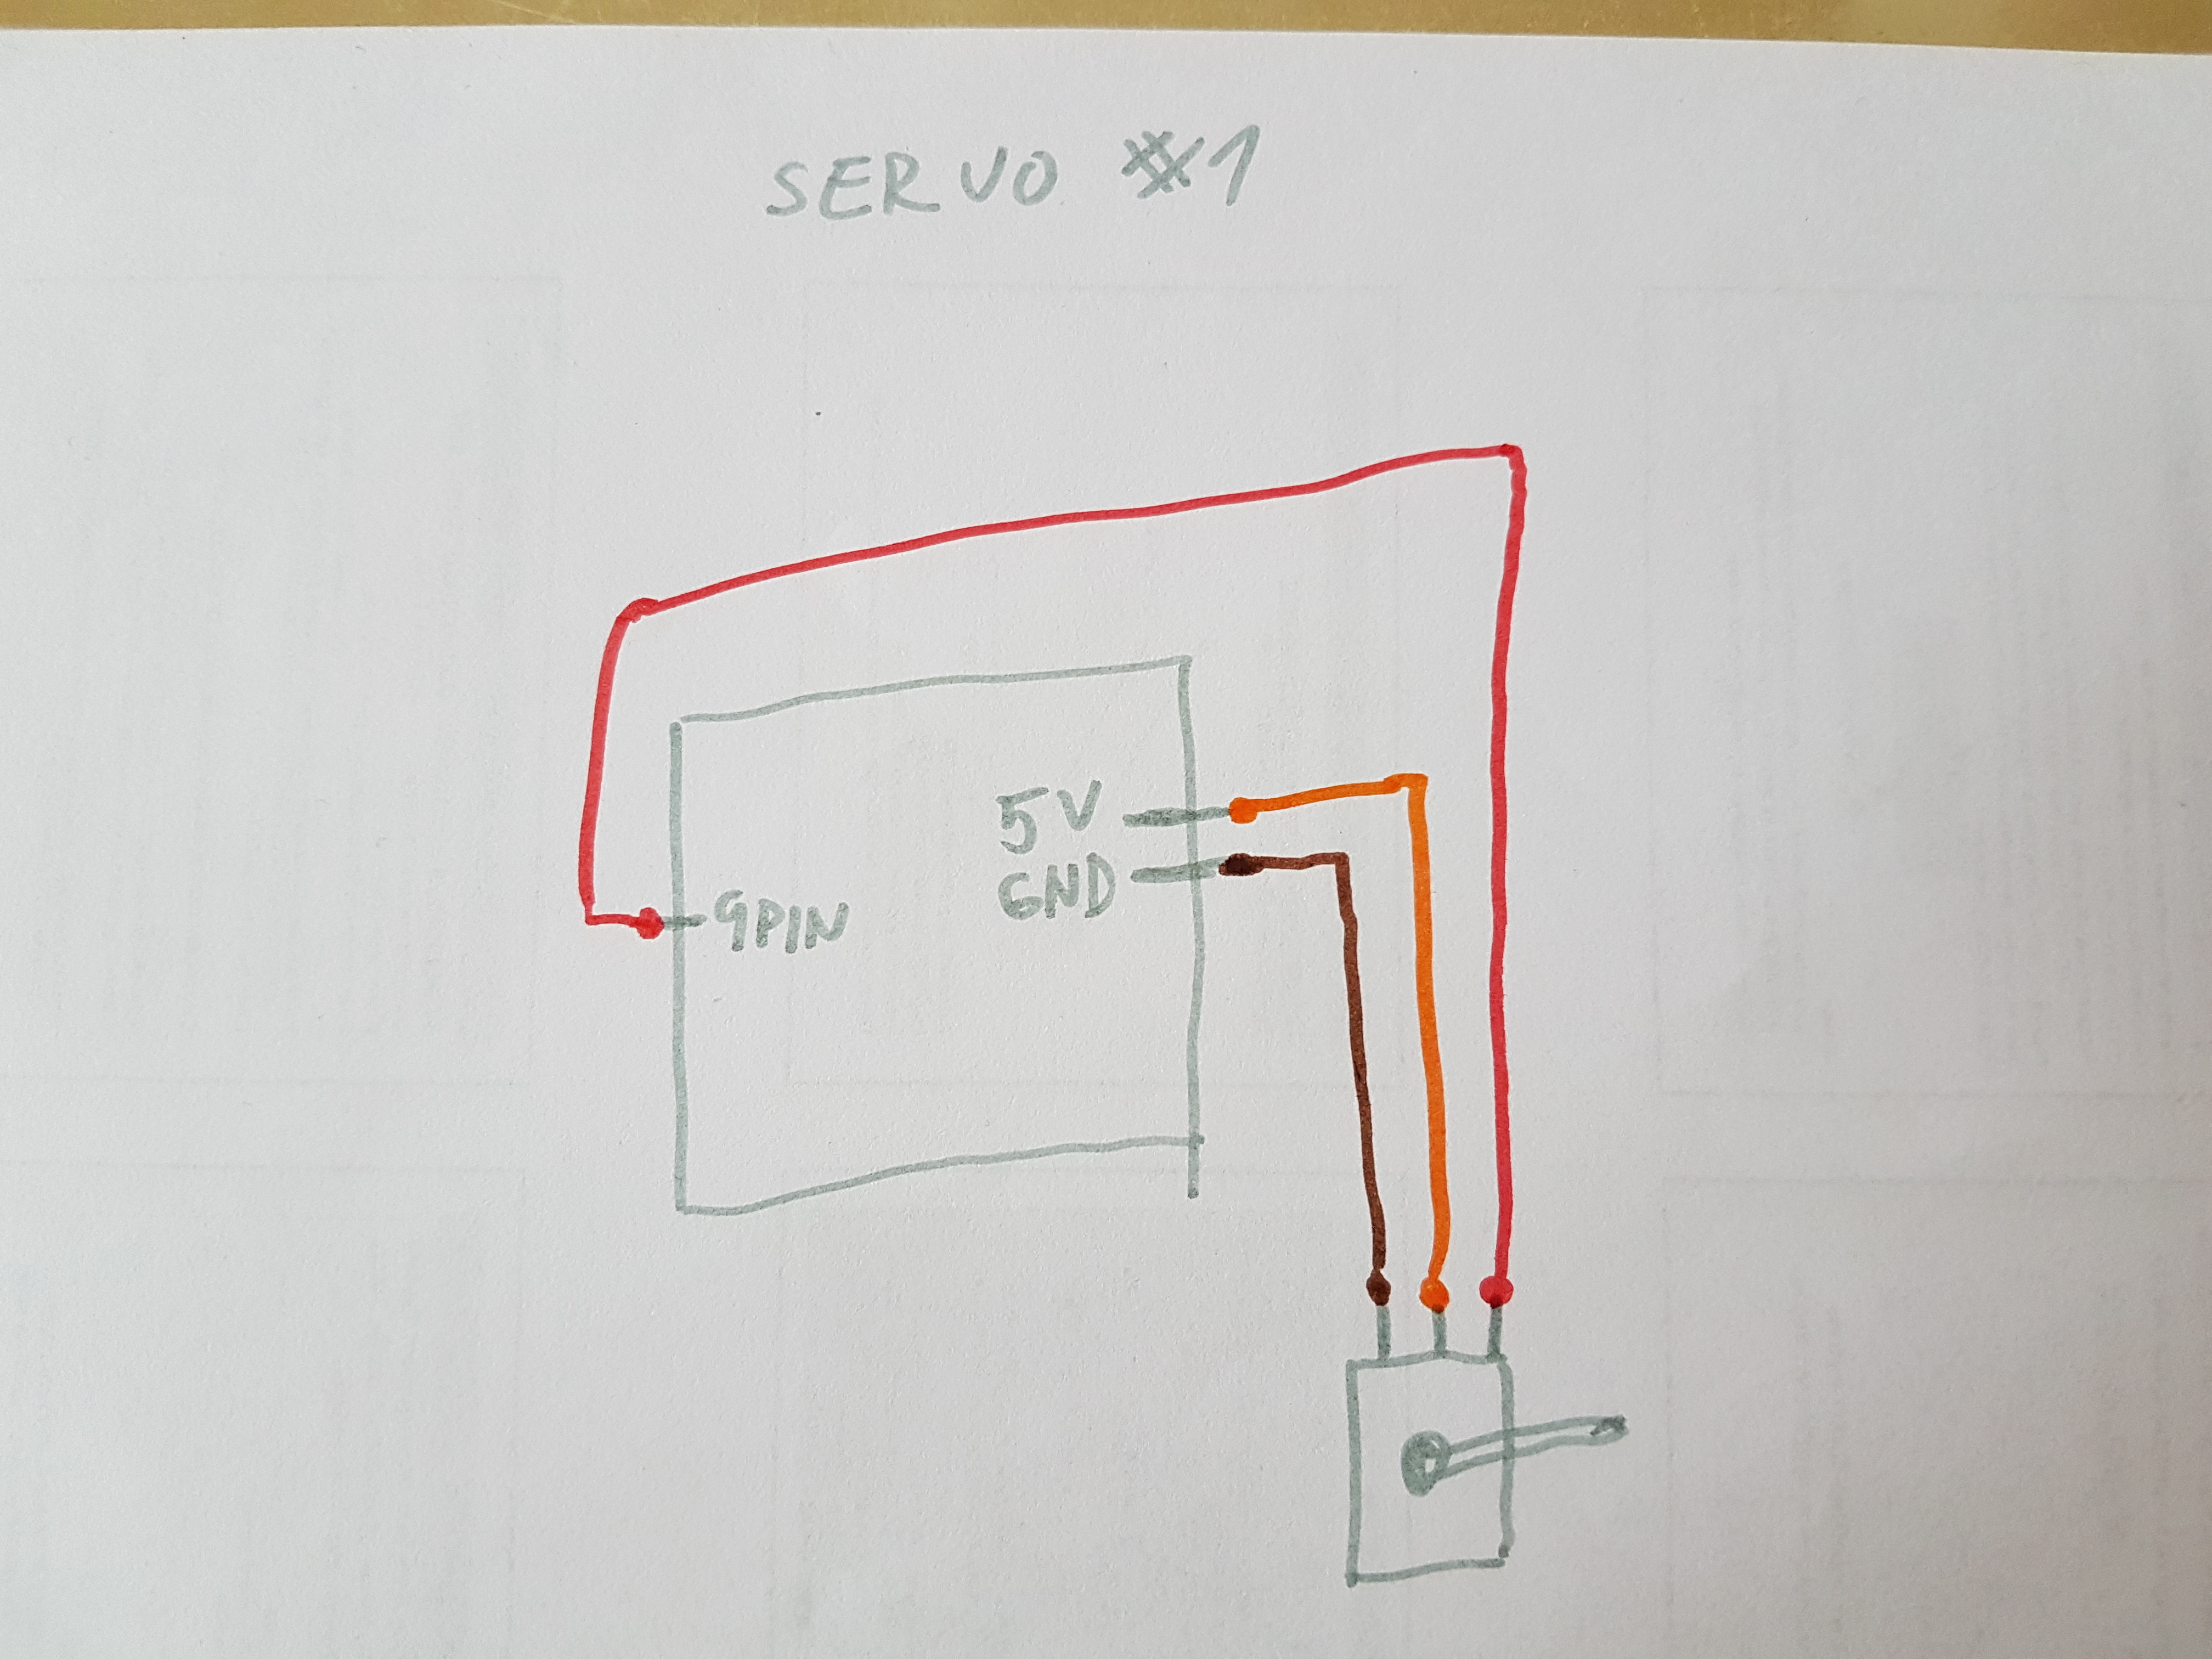 SERVO #1
5V
GND
9PIN